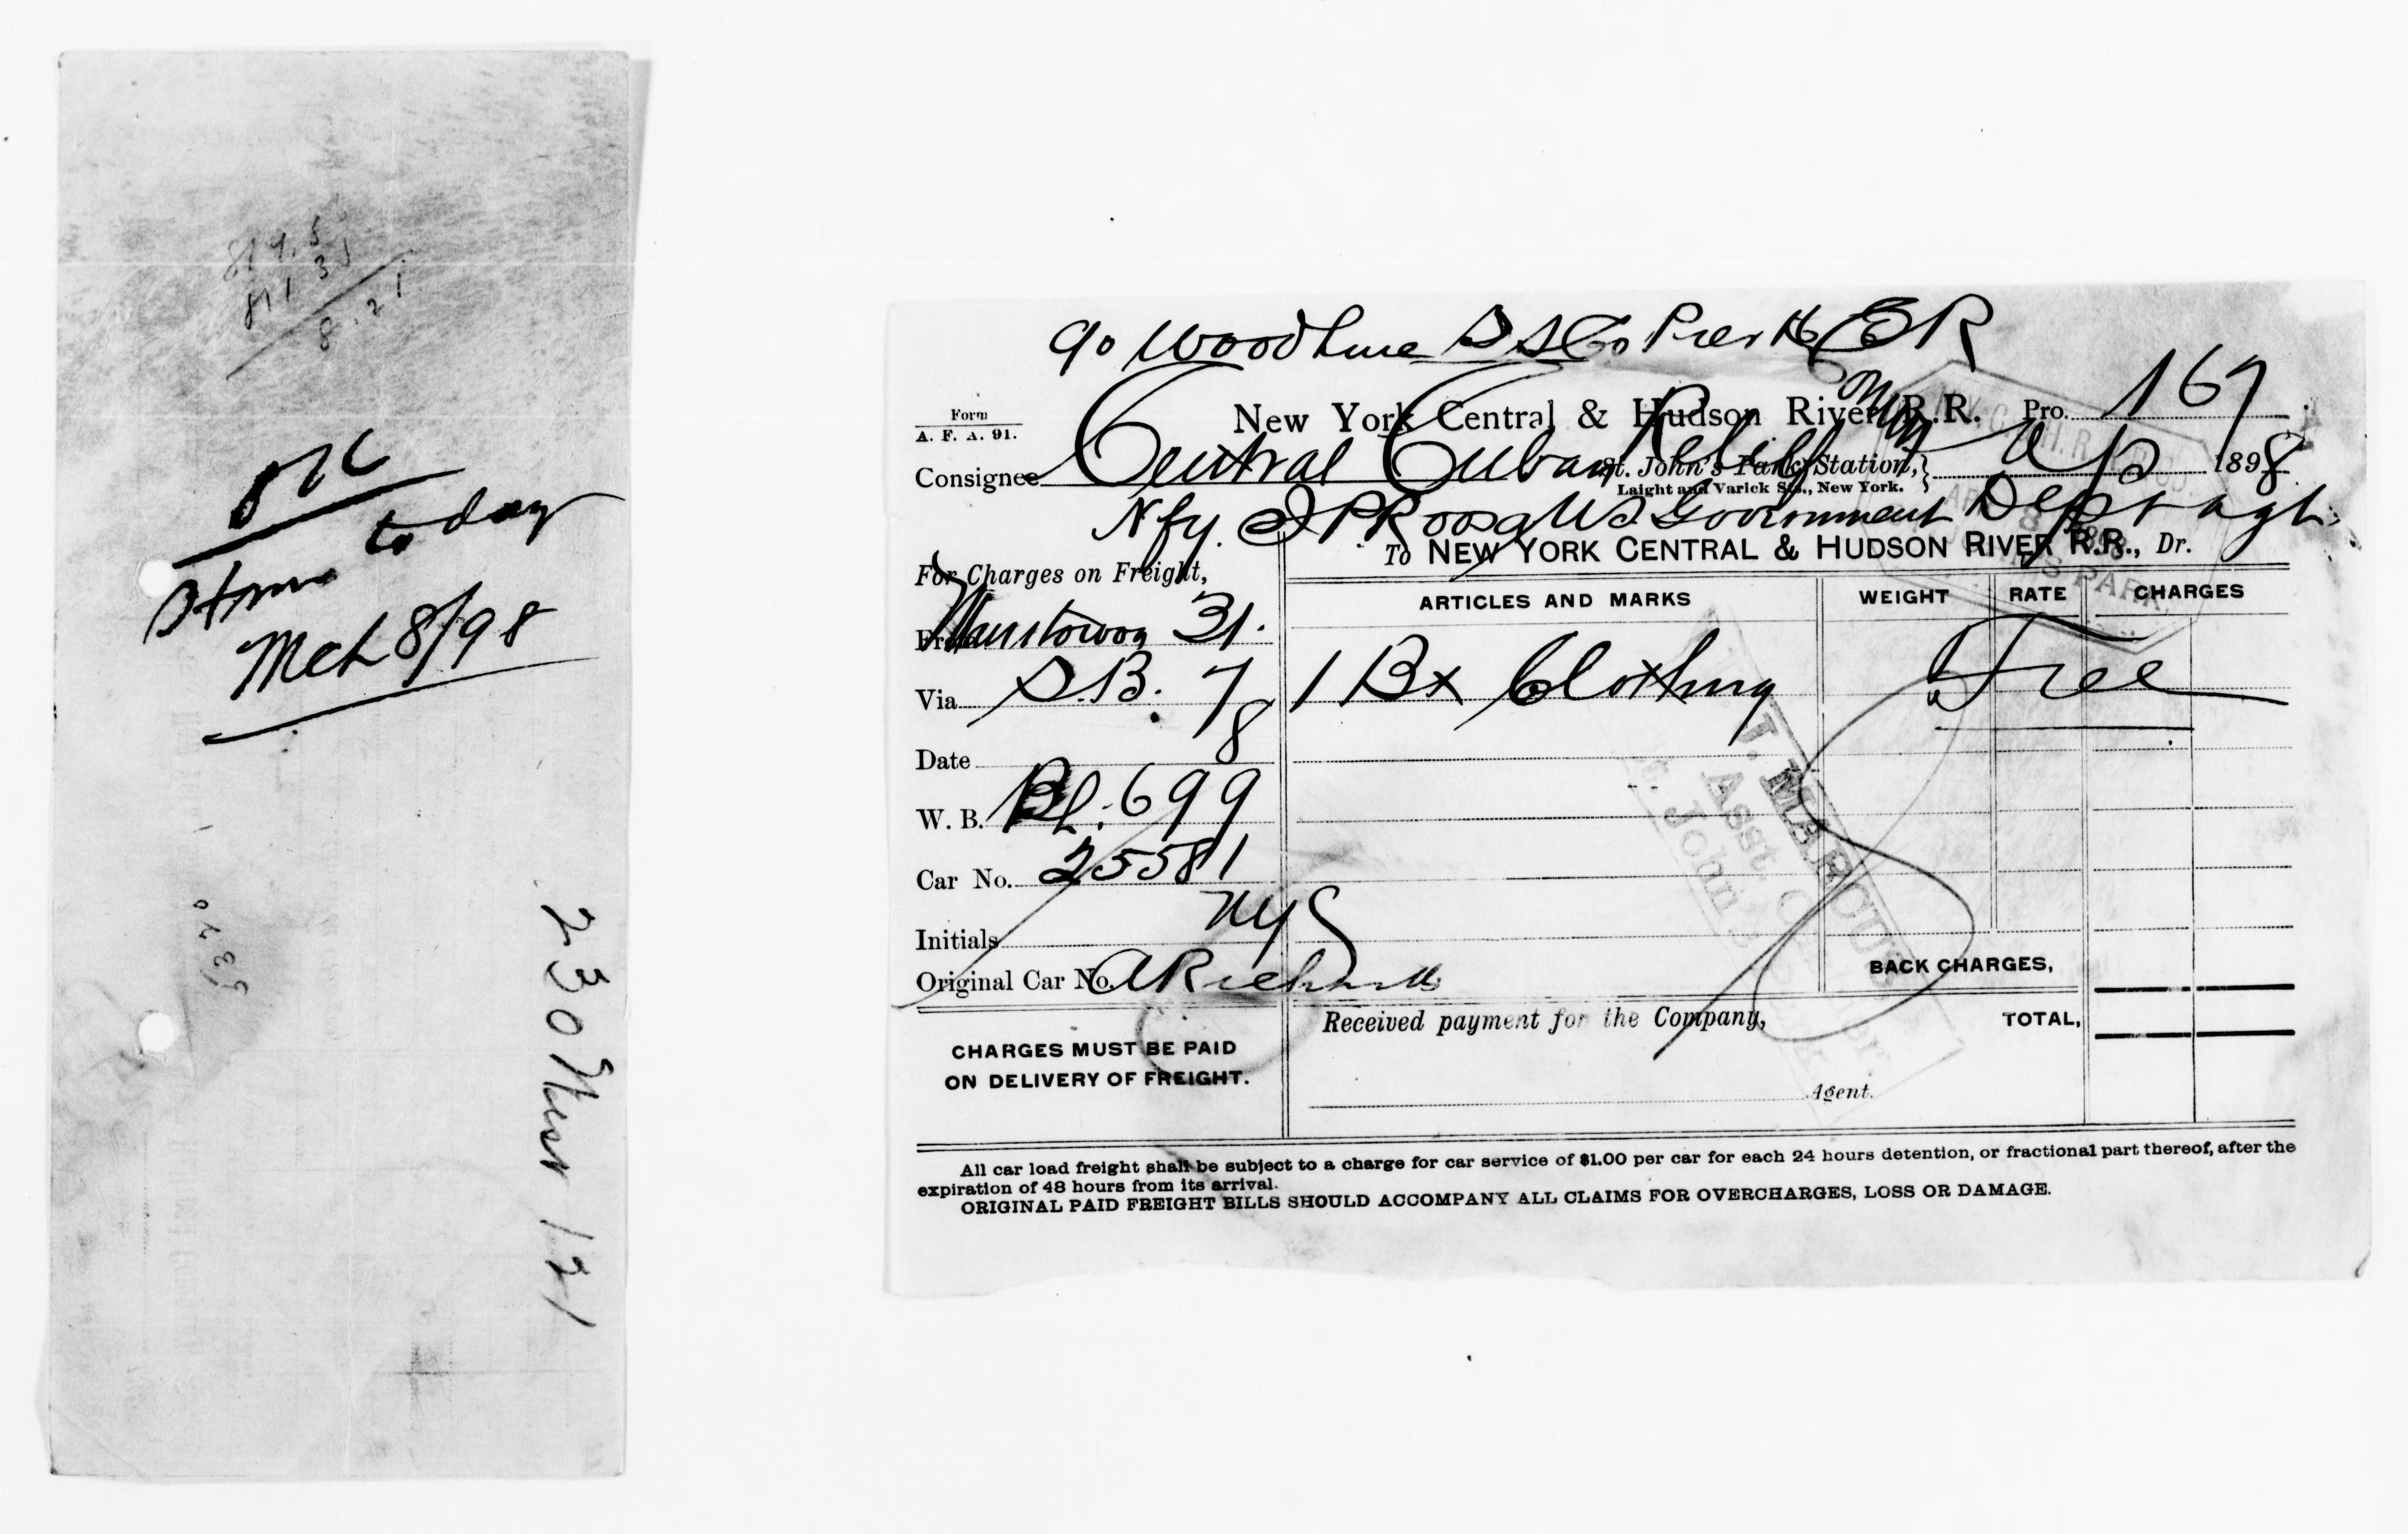 819.5
811.31
8.21
today
Mch 8/98
230
121
c/o Woodhouse S S Co Pier 16 ER
Form
A. F. A. 91.
New York Central & Hudson River R.R. Pro. 167
Consignee Central Cuban Relief
St. John's Park Station,
Laight and Varick Sts., New York.
Ap 8 1898
Nfy. Government Dept agt.
To NEW YORK CENTRAL & HUDSON RIVER R.R., Dr.
For Charges on Freight,
ARTICLES AND MARKS WEIGHT RATE CHARGES
From 31.
Via S.B. 7
1 Bx Clothing Free
Date 8
W. B. Bl. 699
Car No. 25581
Initials NYC
Original Car No.
BACK CHARGES,
Received payment for the Company,
TOTAL,
CHARGES MUST BE PAID
ON DELIVERY OF FREIGHT.
Agent.
All car load freight shall be subject to a charge for car service of $1.00 per car for each 24 hours detention, or fractional part thereof, after the
expiration of 48 hours from its arrival.
ORIGINAL PAID FREIGHT BILLS SHOULD ACCOMPANY ALL CLAIMS FOR OVERCHARGES, LOSS OR DAMAGE.